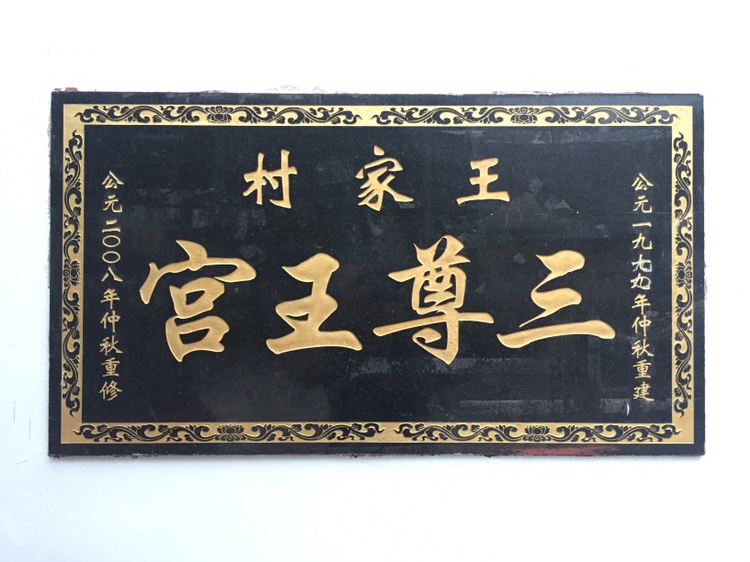 公元一九七九年仲秋重建
王家村
三尊王宫
公元二〇〇八年仲秋重修